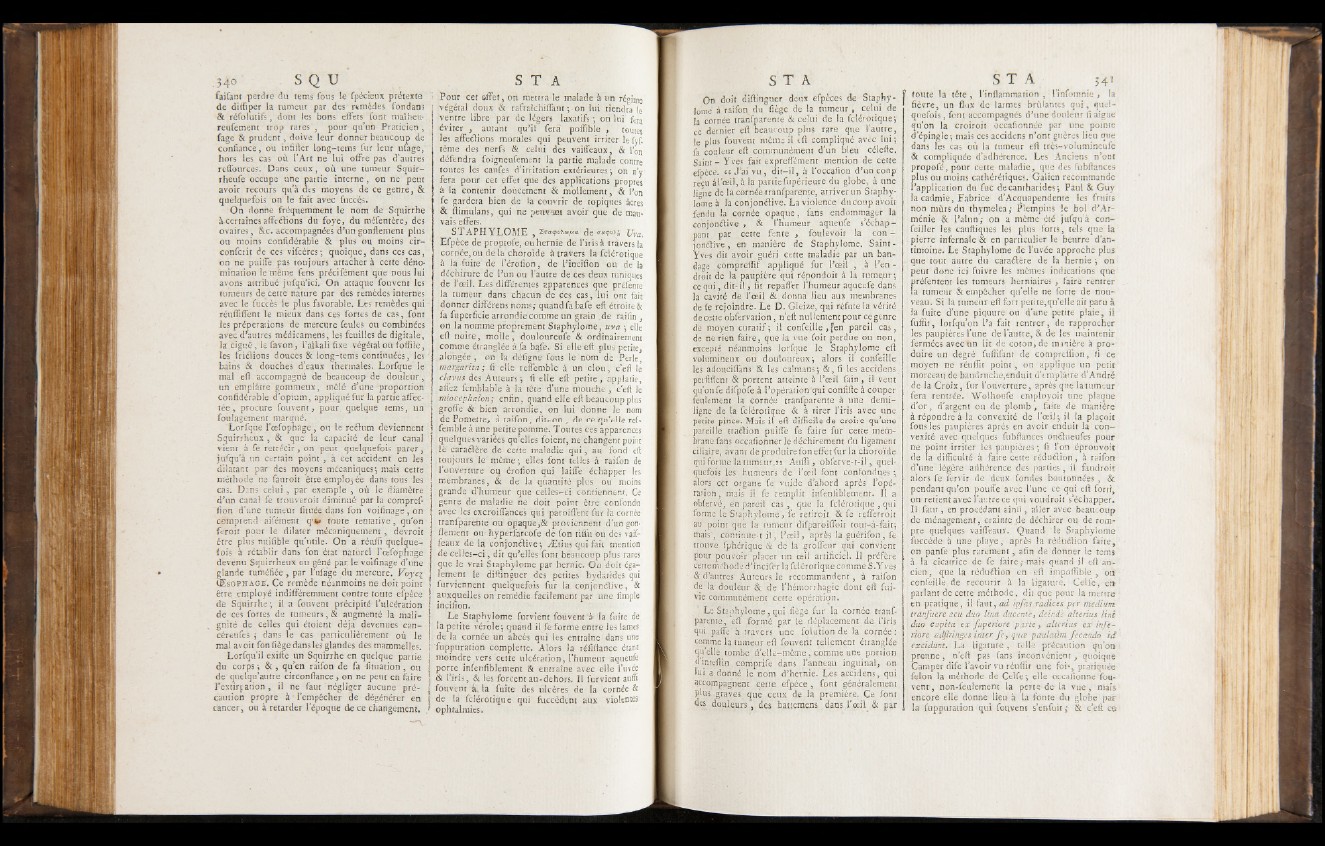 340 S Q U
faisant perdre du tems sous le spécieux prétexte
de dissiper la tumeur par des remèdes fondans
& résolutifs, dont les bons effets sont malheu-
reusement trop rares, pour qu'un Praticien,
sage & prudent, doive leur donner beaucoup de
confiance, ou insister long-tems sur leur usage,
hors les cas où l'Art ne lui offre pas d'autres
ressources. Dans ceux, où une tumeur Squir-
rheuse occupe une partie interne, on ne peut
avoir recours qu'à des moyens de ce genre, &
quelquefois on le fait avec succès.
On donne fréquemment le nom de Squirrhe
à certaines affections du foye, du mésentère, des
ovaires, &c. accompagnées d'un gonflement plus
ou moins considérable & plus ou moins cir-
conscrit de ces viscères; quoique, dans ces cas,
on ne puisse pas toujours attacher à cette déno-
mination le même sens précisément que nous lui
avons attribué jusqu'ici. On attaque souvent les
tumeurs de cette nature par des remèdes internes
avec le succès le plus favorable. Les remèdes qui
réussissent le mieux dans ces sortes de cas, sont
les préparations de mercure seules ou combinées
avec d'autres médicamens, les feuilles de digitale,
la ciguë, le savon, l'alkali fixe végétal ou fossile,
les frictions douces & long-tems continuées, les
bains & douches d'eaux thermales. Lorsque le
mal est accompagné de beaucoup de douleur,
un emplâtre gommeux, mêlé d'une proportion
considérable d'opium, appliqué sur la partie affec-
tée, procure souvent, pour quelque tems, un
soulagement marqué.
Lorsque l'œsophage, ou le rectum deviennent
Squirrheux, & que la capacité de leur canal
vient à se rétrécir, on peut quelquefois parer,
jusqu'à un certain point, à cet accident en les
dilatant par des moyens mécaniques; mais cette
méthode ne sauroit être employée dans tous les
cas. Dans celui, par exemple, où le diamètre
d'un canal se trouveroit diminué par la compres-
sion d'une tumeur située dans son voisinage, on
comprend aisément que toute tentative, qu'on
feroit pour le dilater mécaniquement, devroit
être plus nuisible qu'utile. On a réussi quelque-
fois à rétablir dans son état naturel l'œsophage
devenu Squirrheux ou gêné par le voisinage d'une
glande tuméfiée, par l'usage du mercure. Voyez
ŒSOPHAGE. Ce remède néanmoins ne doit point
être employé indifféremment contre toute espèce
de Squirrhe; il a souvent précipité l'ulcération
de ces sortes de tumeurs, & augmenté la mali-
gnité de celles qui étoient déja devenues can-
céreuses; dans le cas particulièrement où le
mal avoit son siège dans les glandes des mammelles.
Lorsqu'il existe un Squirrhe en quelque partie
du corps; &, qu'en raison de sa situation, ou
de quelqu'autre circonstance, on ne peut en faire
l'extirpation, il ne faut négliger aucune pré-
caution propre à l'empêcher de dégénérer en
cancer, ou à retarder l'époque de ce changement.
S T A
Pour cet effet, on mettra le malade à un régime
végétal doux & rafraîchissant; on lui tiendra le
ventre libre par de légers laxatifs; on lui fera
éviter, autant qu'il sera possible, toutes
les affections morales qui peuvent irriter le sys-
tème des nerfs & celui des vaisseaux, & l'on
défendra soigneusement la partie malade contre
toutes les causes d'irritation extérieures; on n'y
fera pour cet effet que des applications propres
à la contenir doucement & mollement, & l'on
se gardera bien de la couvrir de topiques âcres
& stimulans, qui ne peuvent avoir que de mau-
vais effets.
STAPHYLOME, de Uva.
Espèce de proptose, ou hernie de l'iris à travers la
cornée, ou de la choroïde à travers la sclérotique
à la suite de l'érosion, de l'incision ou de la
déchirure de l'un ou l'autre de ces deux tuniques
de l'œil. Les différentes apparences que présente
la tumeur dans chacun de ces cas, lui ont fait
donner différens noms; quand sa base est étroite &
sa superficie arrondie comme un grain de raisin,
on la nomme proprement Staphylome, uva; elle
est noire, molle, douloureuse & ordinairement
comme étranglée à sa base. Si elle est plus petite,
alongée, on la désigne sous le nom de Perle,
margarita; si elle ressemble à un clou, c'est le
clavus des Auteurs; si elle est petite, applatie,
assez semblable à la tête d'une mouche, c'est le
miocephalon; enfin, quand elle est beaucoup plus
grosse & bien arrondie, on lui donne le nom
de Pomette, à raison, dit-on, de ce qu'elle res-
semble à une petite pomme. Toutes ces apparences
quelques variées qu'elles soient, ne changent point
le caractère de cette maladie qui, au fond est
toujours le même; elles sont telles à raison de
l'ouverture ou érosion qui laisse échapper les
membranes, & de la quantité plus ou moins
grande d'humeur que celles-ci contiennent. Ce
genre de maladie ne doit point être confondu
avec les excroissances qui paroissent sur la cornée
transparente ou opaque, & proviennent d'un gon-
flement ou hypersarcose de son tissu ou des vais-
seaux de la conjonctive; Ætius qui fait mention
de celles-ci, dit qu'elles sont beaucoup plus rares
que le vrai Staphylome par hernie. On doit éga-
lement le distinguer des petites hydatides qui
surviennent quelquefois sur la conjonctive, &
auxquelles on remédie facilement par une simple
incision.
Le Staphylome survient souvent à la suite de
la petite vérole; quand il se forme entre les lames
de la cornée un abcès qui les entraîne dans une
suppuration complette. Alors la résistance étant
moindre vers cette ulcération, l'humeur aqueuse
porte insensiblement & entraîne avec elle l'uvée
& l'iris, & les forcent au-dehors. Il survient aussi
souvent à la suite des ulcères de la cornée &
de la sclérotique qui succèdent aux violentes
ophtalmies.
S T A
On doit distinguer deux espèces de Staphy-
lome à raison du siège de la tumeur, celui de
la cornée transparente & celui de la sclérotique;
ce dernier est beaucoup plus rare que l'autre,
le plus souvent même il est compliqué avec lui;
sa couleur est communément d'un bleu céleste.
Saint-Yves fait expressément mention de cette
espèce. « J'ai vu, dit-il, à l'occasion d'un coup
reçu à l'œil, à la partie supérieure du globe, à une
ligne de la cornée transparente, arriver un Staphy-
lome à la conjonctive. La violence du coup avoit
fendu la cornée opaque, sans endommager la
conjonctive, & l'humeur aqueuse s'échap-
pant par cette fente, soulevoit la con-
jonctive, en manière de Staphylome. Saint-
Yves dit avoir guéri cette maladie par un ban-
dage compressif appliqué sur l'œil, à l'en-
droit de la paupière qui répondoit à la tumeur;
ce qui, dit-il, fit repasser l'humeur aqueuse dans
la cavité de l'œil & donna lieu aux membranes
de se rejoindre. Le D. Gleize, qui réfute la vérité
de cette observation, n'est nullement pour ce genre
de moyen curatif; il conseille, en pareil cas,
de ne rien faire, que la vue soit perdue ou non,
excepté néanmoins lorsque le Staphylome est
volumineux ou douloureux; alors il conseille
les adoucissans & les calmans; &, si les accidens
persistent & portent atteinte à l'œil sain, il veut
qu'on se dispose à l'opération qui consiste à couper
seulement la cornée transparente à une demi-
ligne de la sclérotique & à tirer l'iris avec une
petite pince. Mais il est difficile de croire qu'une
pareille traction puisse se faire sur cette mem-
brane sans occasionner le déchirement du ligament
ciliaire, avant de produire son effet sur la choroïde
qui forme la tumeur.» Aussi, observe-t-il, quel-
quefois les humeurs de l'œil sont confondues;
alors cet organe se vuide d'abord après l'opé-
ration, mais il se remplit insensiblement. Il a
observé, en pareil cas, que la sclérotique, qui
forme le Staphylome, se retiroit & se resserroit
au point que la tumeur disparoissoit tout-à-fait;
mais, continue-t-il, l'œil, après la guérison, se
trouve sphérique & de la grosseur qui convient
pour pouvoir placer un œil artificiel. Il préfère
cette méthode d'inciser la sclérotique comme S. Yves
& d'autres Auteurs le recommandent, à raison
de la douleur & de l'hémorrhagie dont est sui-
vie communément cette opération.
Le Staphylome, qui siège sur la cornée trans-
parente, est formé par le déplacement de l'iris
qui passe à travers une solution de la cornée:
comme la tumeur est souvent tellement étranglée
qu'elle tombe d'elle-même, comme une portion
d'intestin comprise dans l'anneau inguinal, on
lui a donné le nom d'hernie. Les accidens, qui
accompagnent cette espèce, sont généralement
plus graves que ceux de la première. Ce sont
des douleurs, des battemens dans l'œil & par
S T A 341
toute la tête, l'inflammation, l'insomnie, la
fièvre, un flux de larmes brûlantes qui, quel-
quefois, sont accompagnés d'une douleur si aigue
qu'on la croiroit occasionnée par une pointe
d'épingle; mais ces accidens n'ont guères lieu que
dans les cas où la tumeur est très-volumineuse
& compliquée d'adhérence. Les Anciens n'ont
proposé, pour cette maladie, que des substances
plus ou moins cathérétiques. Galien recommande
l'application du suc de cantharides; Paul & Guy
la cadmie, Fabrice d'Acquapendente les fruits
non mûrs du thymelea; Plempius le bol d'Ar-
ménie & l'alun; on a même été jusqu'à con-
seiller les caustiques les plus forts, tels que la
pierre infernale & en particulier le beurre d'an-
timoine. Le Staphylome de l'uvée approche plus
que tout autre du caractère de la hernie; on
peut donc ici suivre les mêmes indications que
présentent les tumeurs herniaires, faire rentrer
la tumeur & empêcher qu'elle ne sorte de nou-
veau. Si la tumeur est fort petite, qu'elle ait paru à
la suite d'une piquure ou d'une petite plaie, il
suffit, lorsqu'on l'a fait rentrer, de rapprocher
les paupières l'une de l'autre, & de les maintenir
fermées avec un lit de coton, de manière à pro-
duire un degré suffisant de compression, si ce
moyen ne réussit point, on applique un petit
morceau de baudruche, enduit d'emplâtre d'André
de la Croix, sur l'ouverture, après que la tumeur
sera rentrée. Wolhouse employoit une plaque
d'or, d'argent ou de plomb, faite de manière
à répondre à la convexité de l'œil; il la plaçoit
sous les paupières après en avoir enduit la con-
vexité avec quelques substances onctueuses pour
ne point irriter les paupières; si l'on éprouvoit
de la difficulté à faire cette réduction, à raison
d'une légère adhérence des parties, il faudroit
alors se servir de deux sondes boutonnées, &
pendant qu'on pousse avec l'une ce qui est sorti,
on retient avec l'autre ce qui voudroit s'échapper.
Il faut, en procédant ainsi, aller avec beaucoup
de ménagement, crainte de déchirer ou de rom-
pre quelques vaisseaux. Quand le Staphylome
succède à une playe, après la réduction faite,
on panse plus rarement, afin de donner le tems
à la cicatrice de se faire; mais quand il est an-
cien, que la réduction en est impossible, on
conseille de recourir à la ligature. Celse, en
parlant de cette méthode, dit que pour la mettre
en pratique, il faut, ad ipsas radices per medium
transuere acu duo lina ducente, deinde alterius lini
duo capita ex superiore parte, alterius ex infe-
riore adstringes inter se, quæ paulatim secando id
excidunt. La ligature, telle précaution qu'on
prenne, n'est pas sans inconvénient, quoique
Camper dise l'avoir vu réussir une fois, pratiquée
selon la méthode de Celse; elle occasionne sou-
vent, non-seulement la perte de la vue, mais
encore elle donne lieu à la fonte du globe par
la suppuration qui souvent s'ensuit; & c'est ce